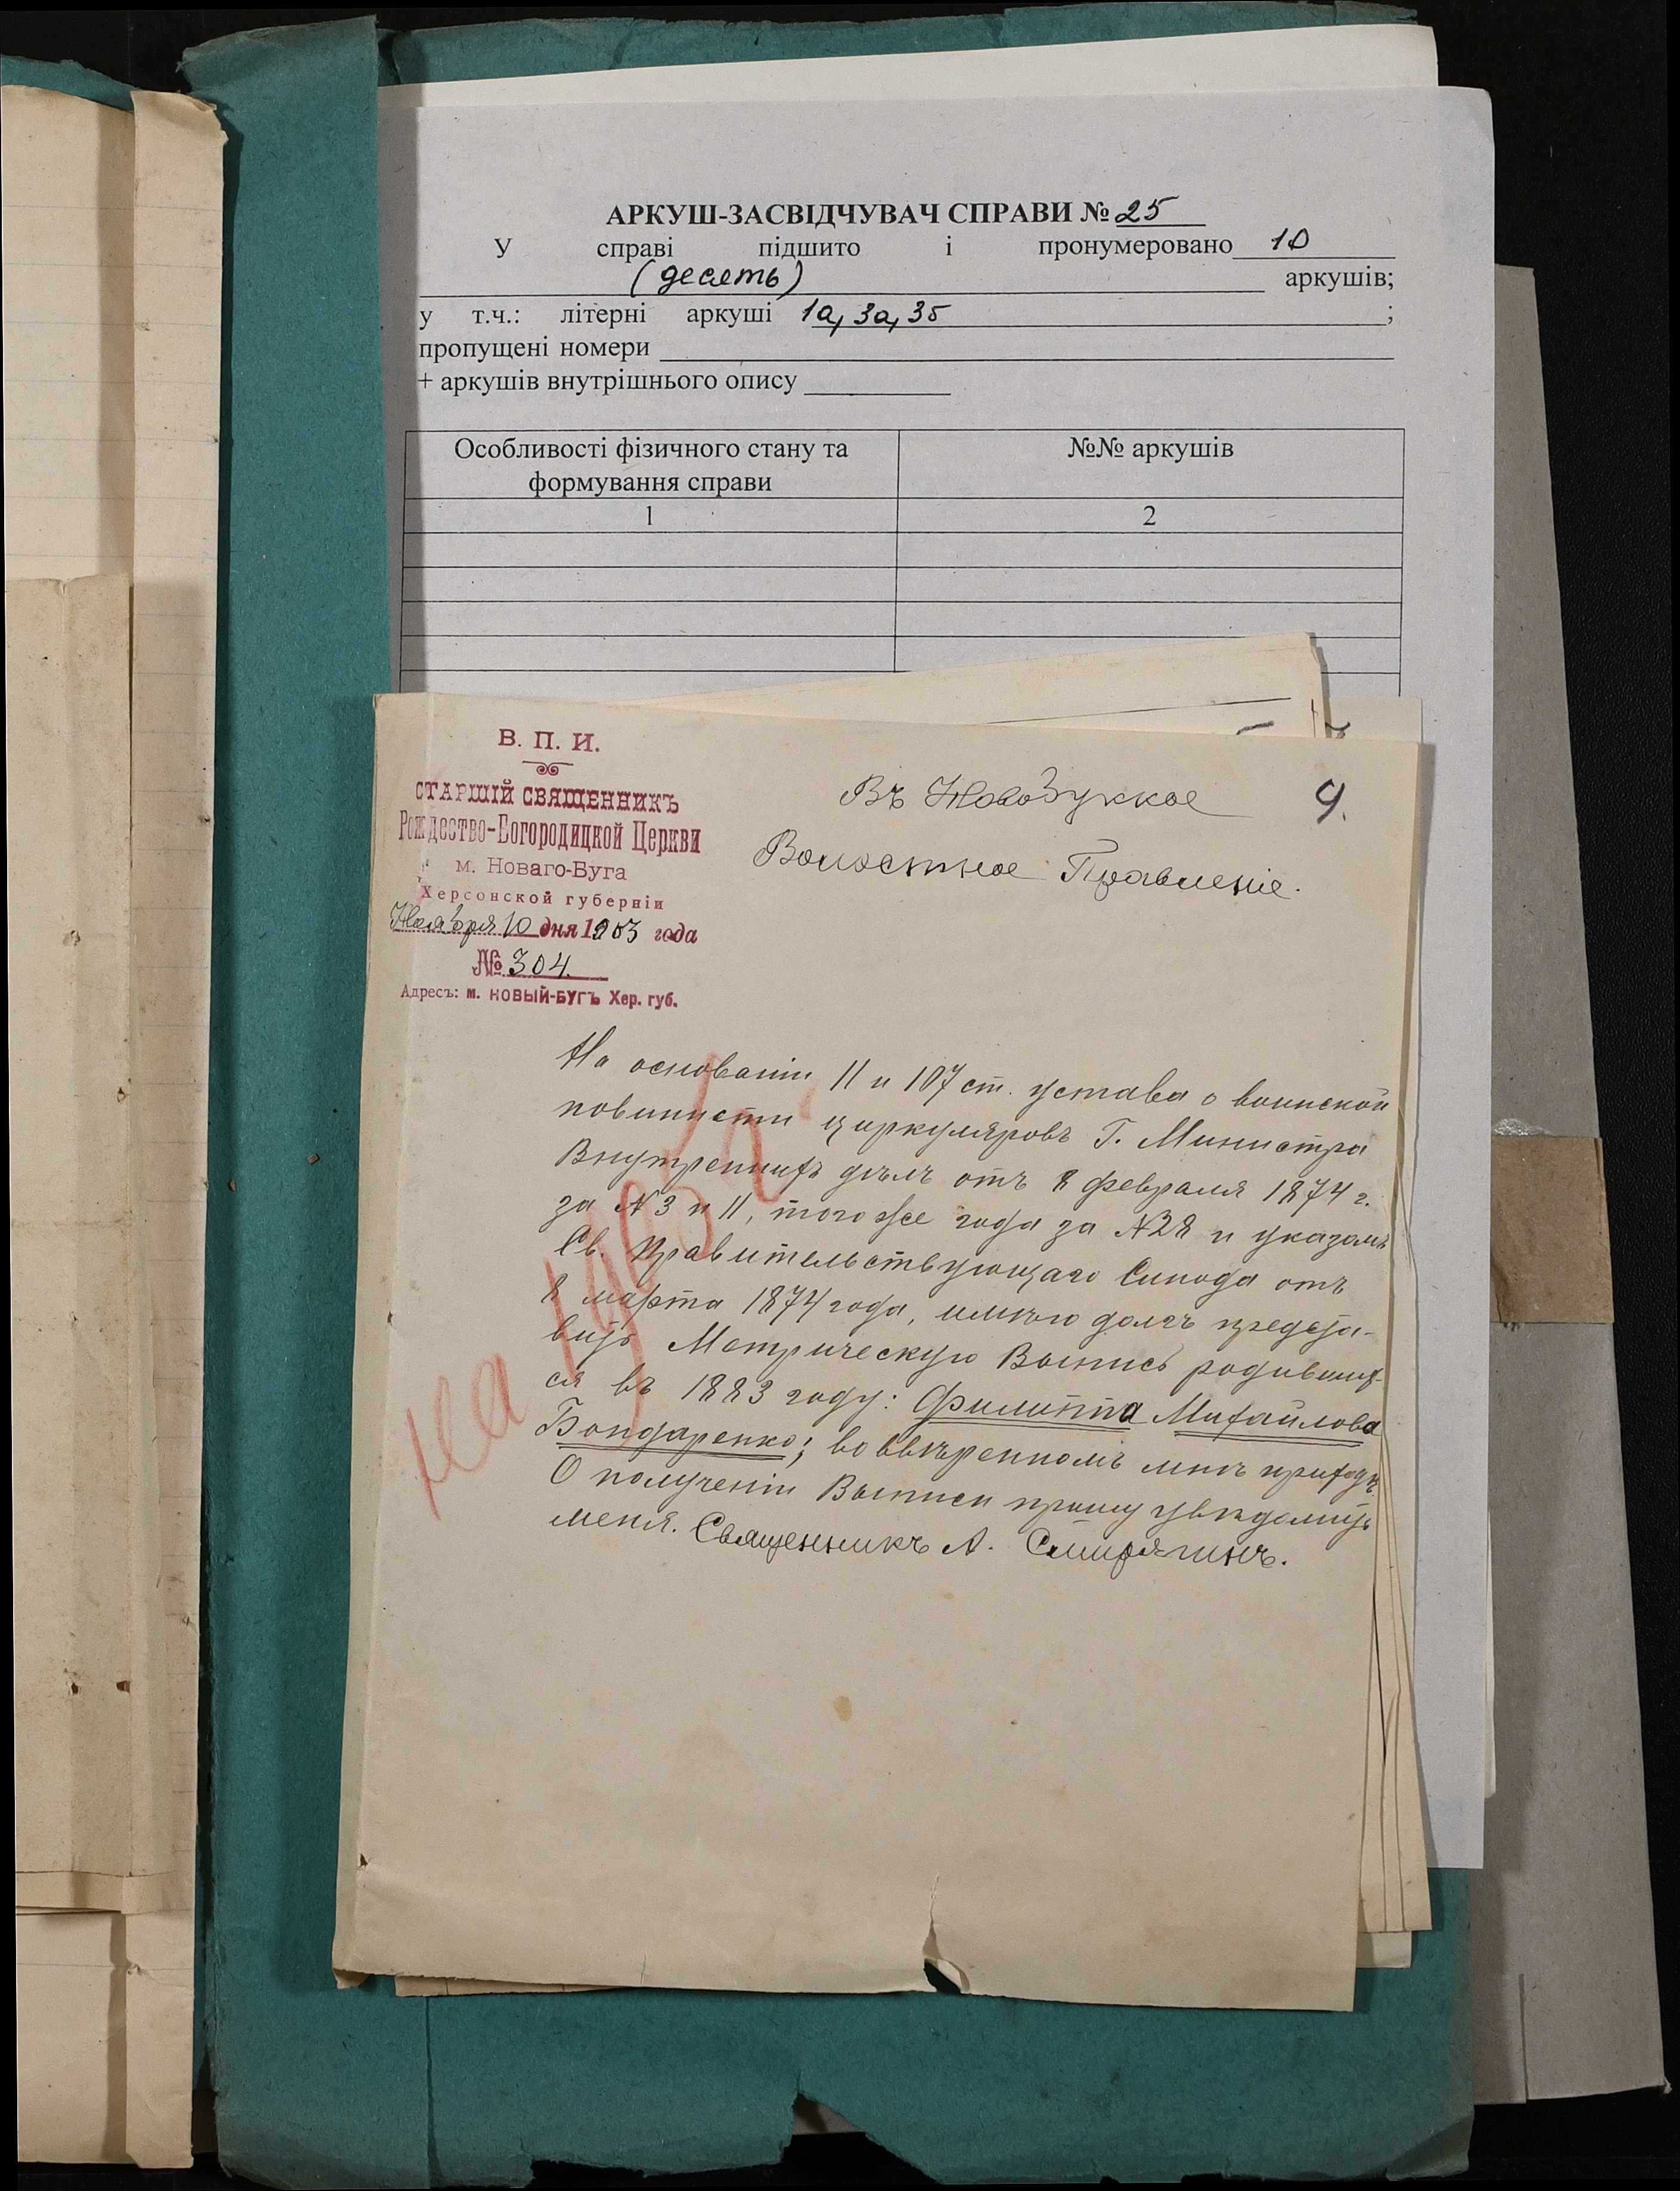 АРКУШ-ЗАСВІДЧУВАЧ СПРАВИ № 25
У справі підшито і пронумеровано 10
(десять) аркушів;
у т.ч.: літерні аркуші 1а, 3а, 3б ;
пропущені номери
+ аркушів внутрішнього опису
Особливості фізичного стану та формування справи
№№ аркушів
1
2
В. П. И.
СТАРШІЙ СВЯЩЕННИКЪ
Рождество-Богородицкой Церкви
м. Новаго-Буга
Херсонской губерніи
Ноября 10 дня 1903 года
№ 304.
Адресъ: м. НОВЫЙ-БУГЪ Хер. губ.
9.
Въ Новобугское
Волостное Правленіе.
На основаніи 11 и 107 ст. устава о воинской
повинности циркуляровъ Г. Министра
Внутреннихъ дѣлъ отъ 8 февраля 1874 г.
за N 3 и 11, того же года за N 28 и указомъ
Св. Правительствующаго Синода отъ
8 марта 1874 года, имѣю долгъ предста-
вить Метрическую Выпись родивших-
ся въ 1883 году: Филиппа Михайлова
Бондаренко; во ввѣренномъ мнѣ приходѣ
О полученіи Выписи прошу увѣдомить
меня. Священникъ А. Смирягинъ.
на 1905 г.